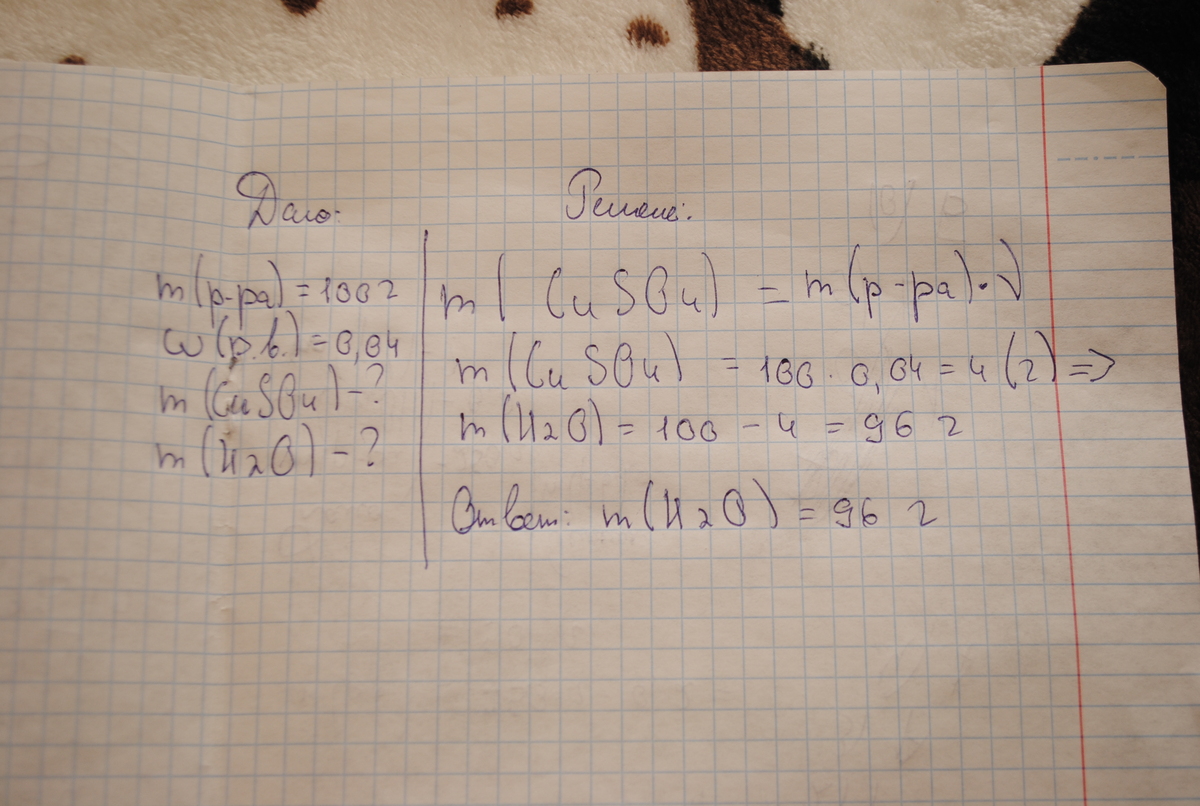 Дано:
m(р-ра) = 100 г
ω(р.в.) = 0,04
m(CuSO4) - ?
m(H2O) - ?
Решение:
m( CuSO4) = m(р-ра) · √
m(CuSO4) = 100 · 0,04 = 4 (г) =>
m(H2O) = 100 - 4 = 96 г
Ответ: m(H2O) = 96 г